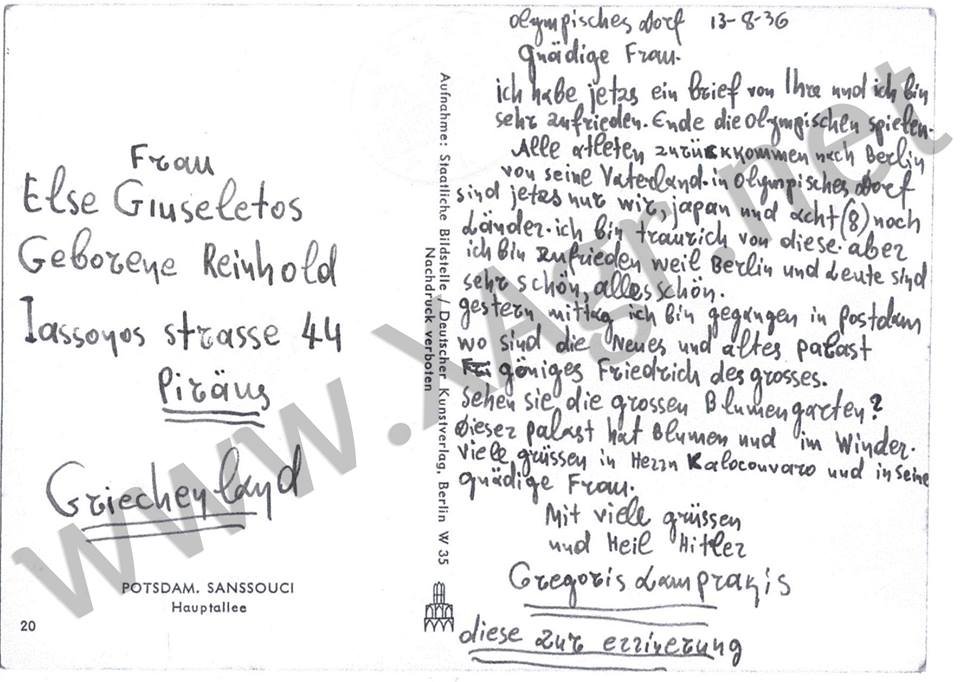 Frau
Else Giuseletos
Geborene Reinhold
Iassonos strasse 44
Piräus
Griechenland
POTSDAM. SANSSOUCI
Hauptallee
20
Aufnahme: Staatliche Bildstelle / Deutscher Kunstverlag, Berlin W 35
Nachdruck verboten
Olympisches dorf 13-8-36
gnädige Frau.
ich habe jetzs ein brief von Ihre und ich bin
sehr zufrieden. Ende die olympischen spielen.
Alle atleten zurückkommen nach Berlin
von seine Vaterland. in olympisches dorf
sind jetzs nur wir, japan und acht (8) noch
Länder. ich bin traurich von diese. aber
ich bin zufrieden weil Berlin und Leute sind
sehr schön, alles schön.
gestern mittag ich bin gegangen in postdam
wo sind die Neues und altes palast
göniges Friedrich des grosses.
Sehen sie die grossen Blumengarten?
dieser palast hat Blumen und im Winder.
viele grüssen in Herrn Kalocouvaro und in seine
gnädige Frau.
Mit viele grüssen
und Heil Hitler
Gregoris Lamprakis
diese zur erzinerung
www.XAgr.net